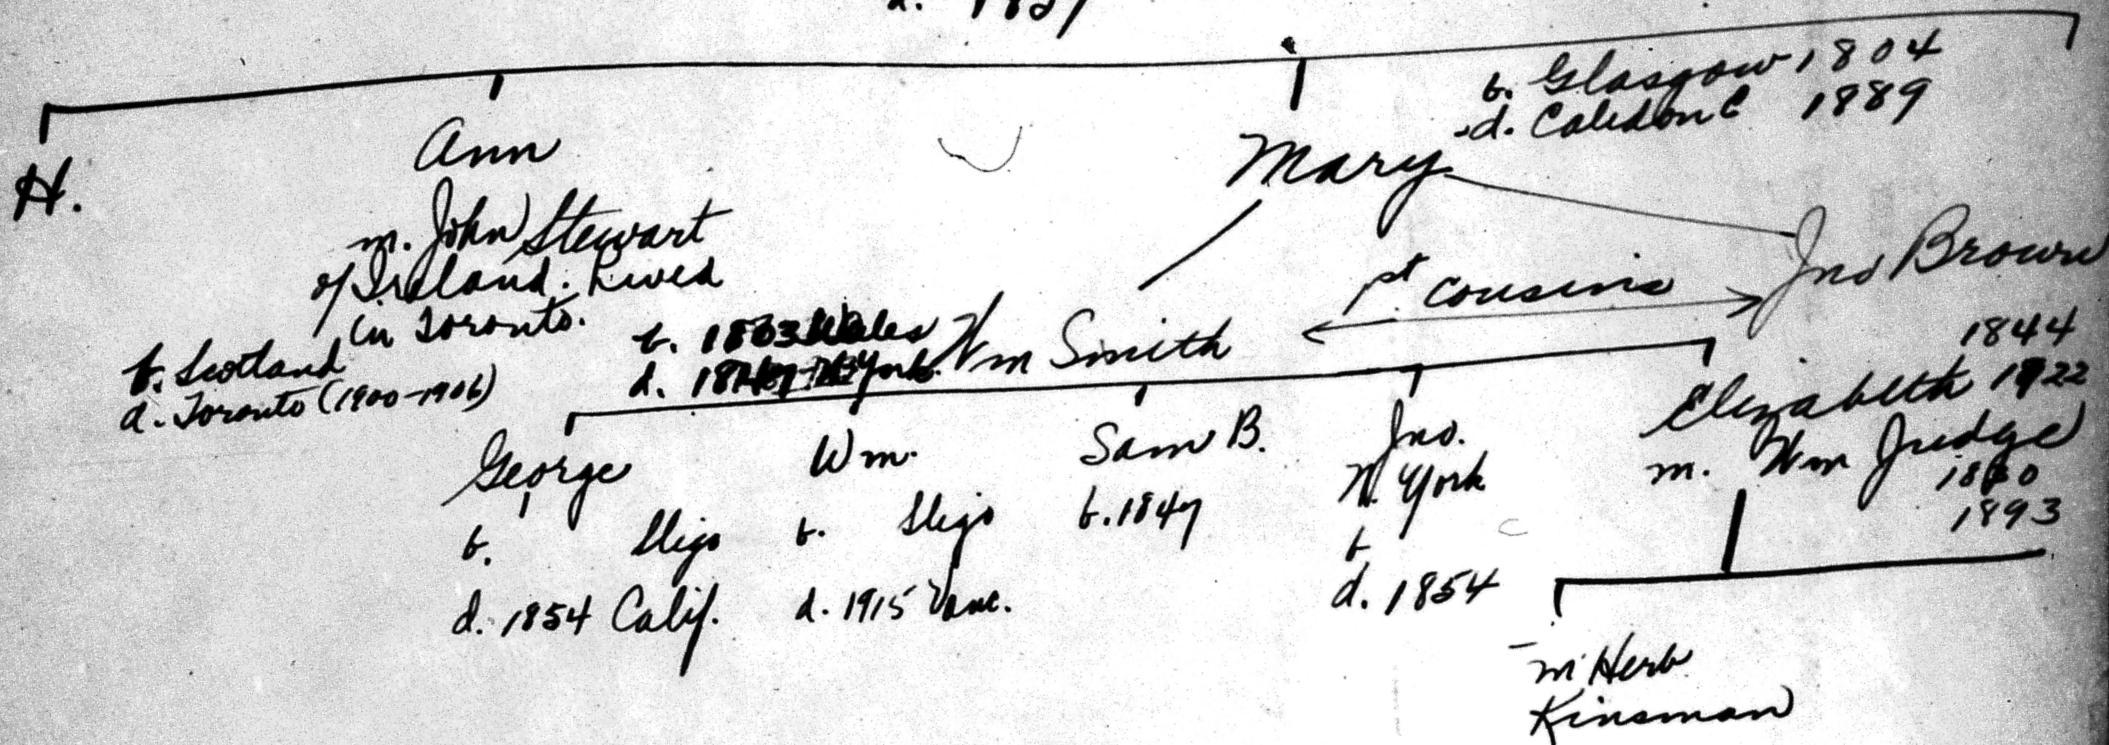 d. 1827
b. Glasgow 1804
d. Caledon 1889
H.
Ann
Mary
m. John Stewart
of Ireland. Lived
in Toronto.
b. Scotland
d. Toronto (1900-1906)
Jno Brown
1st cousins
b. 1803 Wales
d. N. York
Wm Smith
George
b. Sligo
d. 1854 Calif.
Wm.
b. Sligo
d. 1915 Vanc.
Sam B.
b. 1847
Jno.
N. York
b
d. 1854
1844
Elizabeth 1922
m. Wm Judge
1893
m Herb
Kinsman